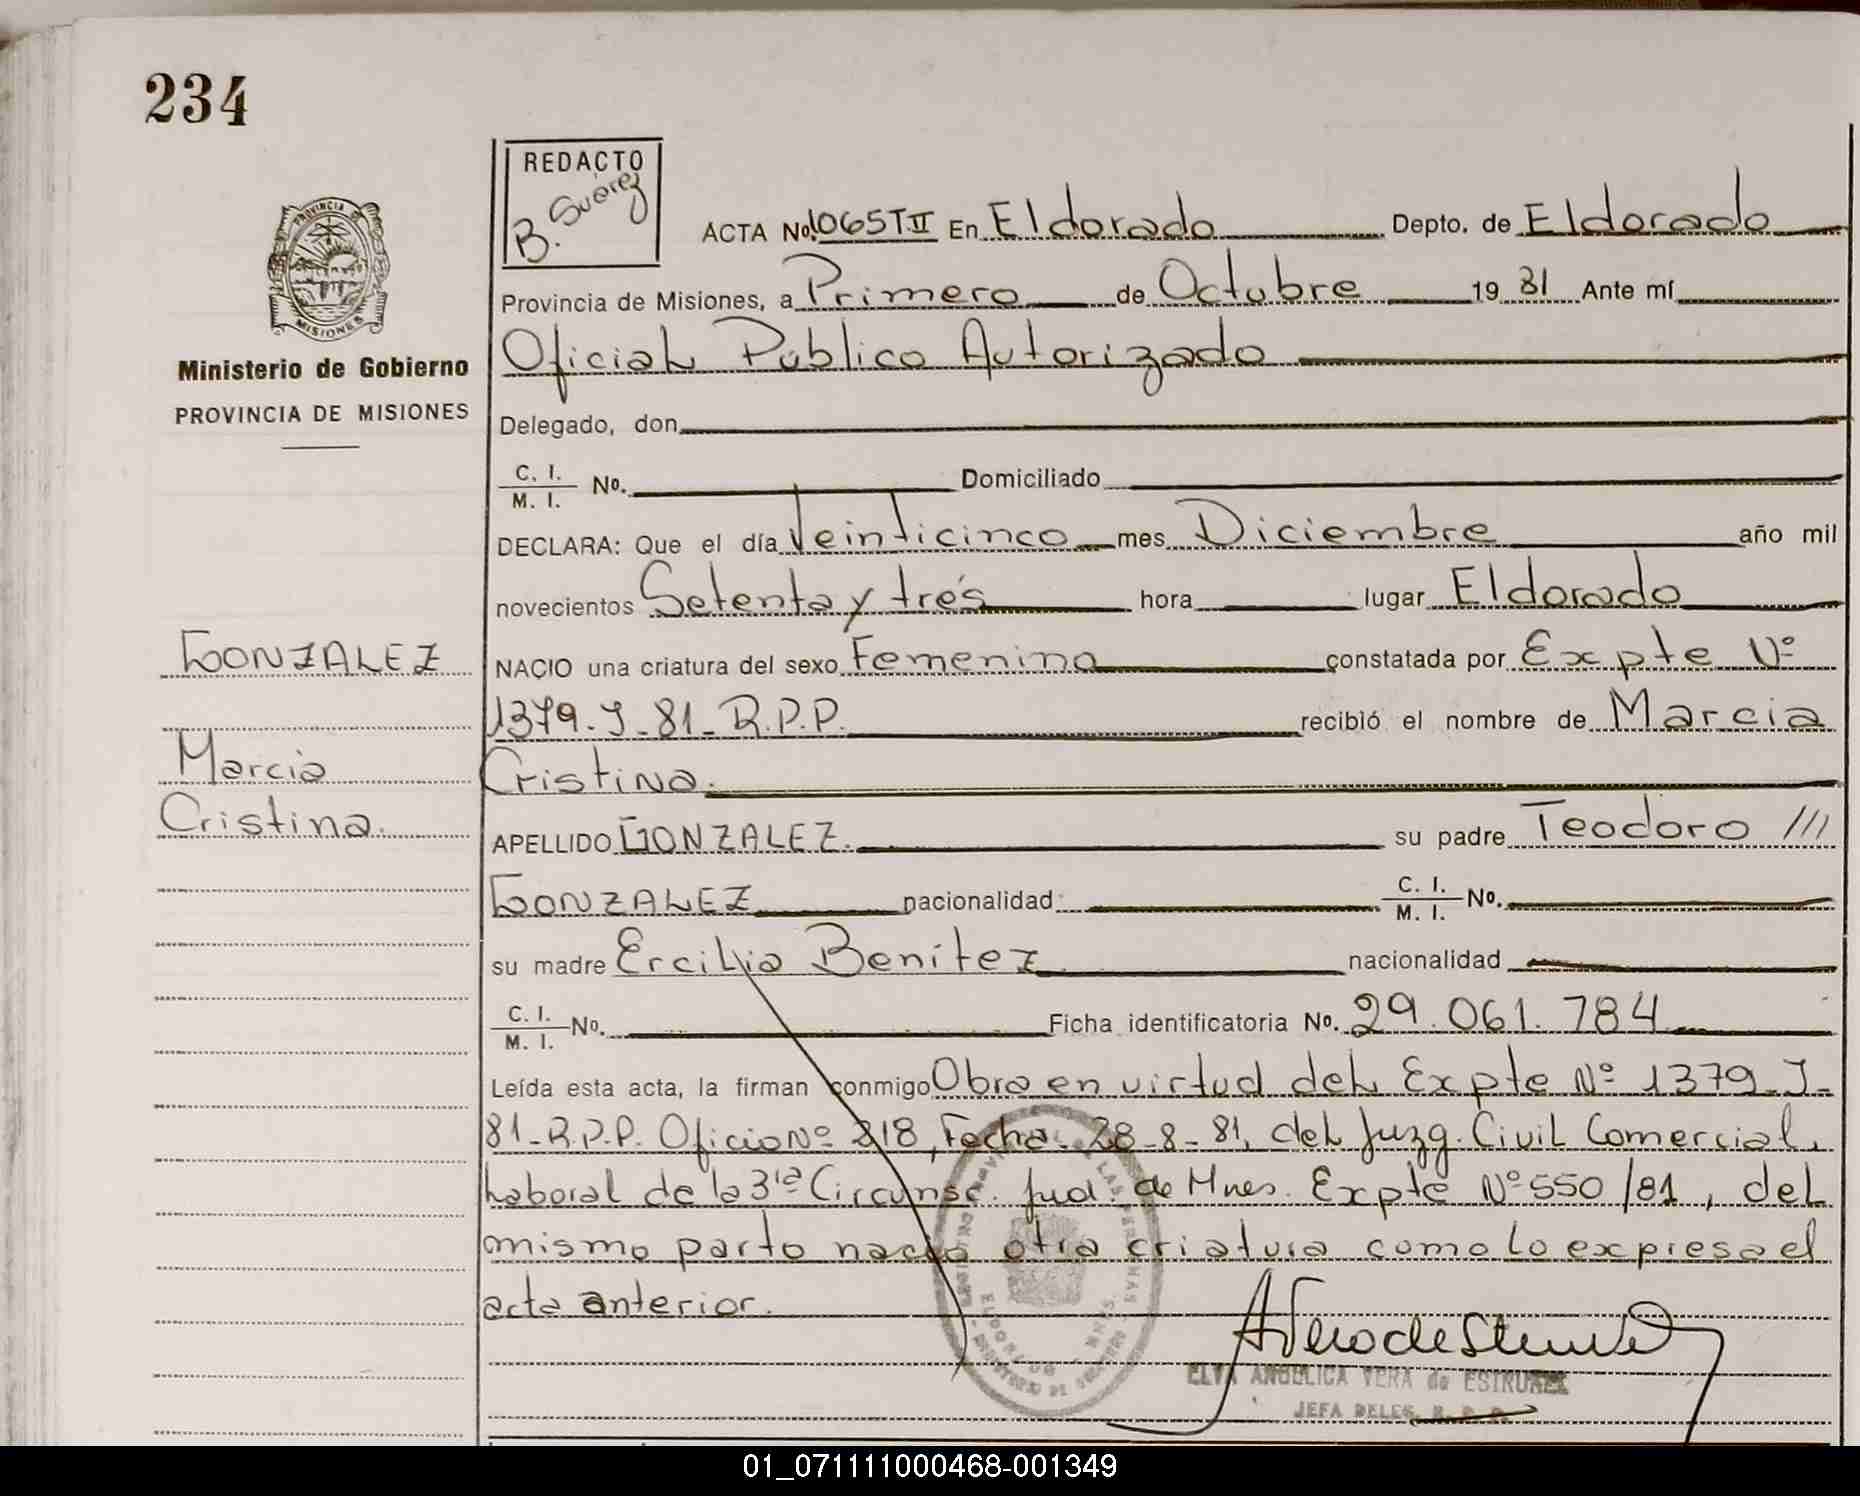 234
REDACTO
B. Suarez
PROVINCIA DE
MISIONES
Ministerio de Gobierno
PROVINCIA DE MISIONES
ACTA No. 1065 T.II En Eldorado Depto. de Eldorado
Provincia de Misiones, a Primero de Octubre 19 81 Ante mí
Oficial Público Autorizado
Delegado, don
C. I.
M. I. No. Domiciliado
DECLARA: Que el día Veinticinco mes Diciembre año mil
novecientos Setenta y trés hora lugar Eldorado
GONZALEZ
NACIO una criatura del sexo Femenino constatada por Expte Nº
1379-J-81-R.P.P. recibió el nombre de Marcia
Marcia
Cristina.
Cristina.
APELLIDO GONZALEZ. su padre Teodoro ///
GONZALEZ nacionalidad: C. I.
M. I. No.
su madre Ercilia Benítez nacionalidad
C. I.
M. I. No. Ficha identificatoria No. 29.061.784
Leída esta acta, la firman conmigo Obra en virtud del Expte Nº 1379-J-
81-R.P.P. Oficio Nº 818, Fecha 28-8-81, del Juzg. Civil Comercial,
Laboral de la 3ra Circunsc. Jud. de Mnes. Expte Nº 550/81, del
mismo parto nació otra criatura como lo expresa el
acta anterior.
ELVA ANGELICA VERA de
JEFA DELEG. R. P. P.
01_071111000468-001349